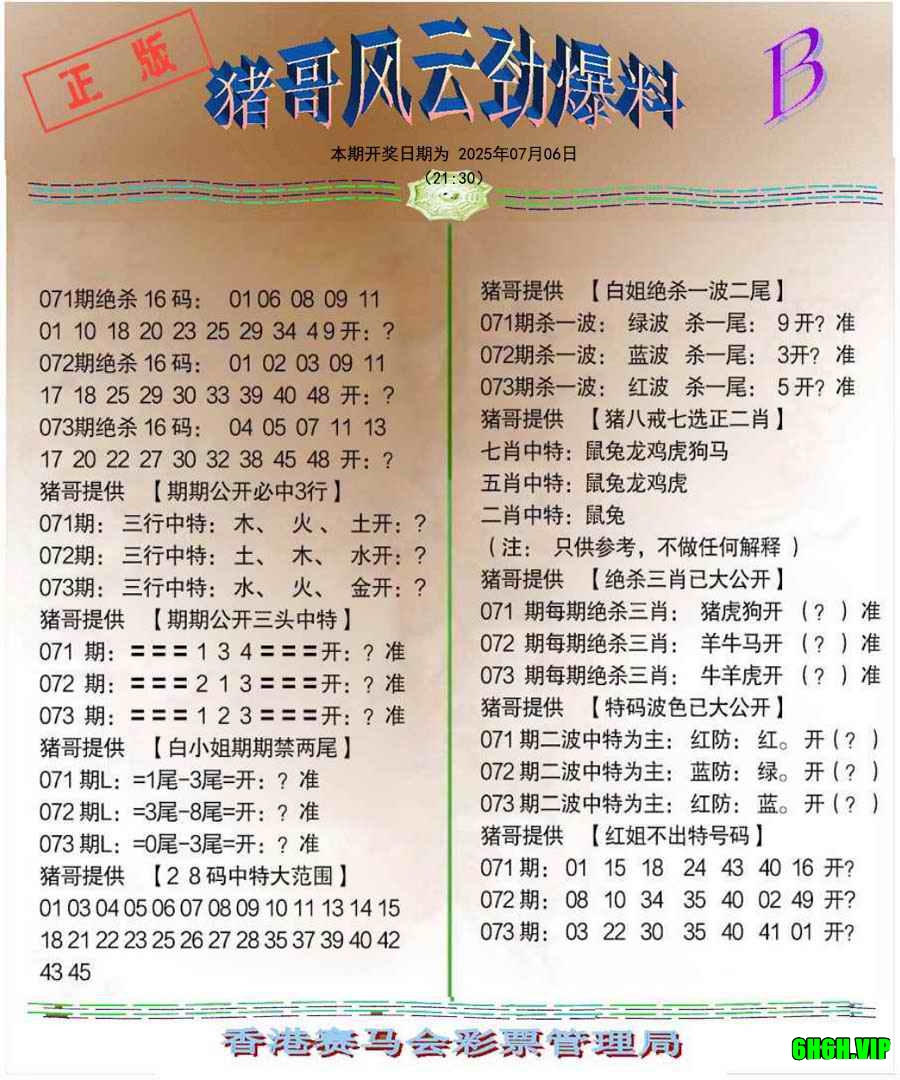 正版
猪哥风云劲爆料
B
本期开奖日期为 2025年07月06日
(21:30)
071期绝杀16码： 01 06 08 09 11
01 10 18 20 23 25 29 34 49开：?
072期绝杀16码： 01 02 03 09 11
17 18 25 29 30 33 39 40 48 开：?
073期绝杀16码： 04 05 07 11 13
17 20 22 27 30 32 38 45 48 开：?
猪哥提供 【期期公开必中3行】
071期：三行中特：木、 火、 土开：?
072期：三行中特：土、 木、 水开：?
073期：三行中特：水、 火、 金开：?
猪哥提供 【期期公开三头中特】
071 期：〓〓〓134〓〓〓开：? 准
072 期：〓〓〓213〓〓〓开：? 准
073 期：〓〓〓123〓〓〓开：? 准
猪哥提供 【白小姐期期禁两尾】
071期L：=1尾-3尾=开：? 准
072期L：=3尾-8尾=开：? 准
073期L：=0尾-3尾=开：? 准
猪哥提供 【28码中特大范围】
01 03 04 05 06 07 08 09 10 11 13 14 15
18 21 22 23 25 26 27 28 35 37 39 40 42
43 45
猪哥提供 【白姐绝杀一波二尾】
071期杀一波： 绿波 杀一尾： 9开? 准
072期杀一波： 蓝波 杀一尾： 3开? 准
073期杀一波： 红波 杀一尾： 5开? 准
猪哥提供 【猪八戒七选正二肖】
七肖中特：鼠兔龙鸡虎狗马
五肖中特：鼠兔龙鸡虎
二肖中特：鼠兔
（注： 只供参考，不做任何解释 ）
猪哥提供 【绝杀三肖已大公开】
071 期每期绝杀三肖： 猪虎狗开 （? ）准
072 期每期绝杀三肖： 羊牛马开 （? ）准
073 期每期绝杀三肖： 牛羊虎开 （? ）准
猪哥提供 【特码波色已大公开】
071期二波中特为主：红防：红。开(? )
072期二波中特为主：蓝防：绿。开(? )
073期二波中特为主：红防：蓝。开(? )
猪哥提供 【红姐不出特号码】
071期：01 15 18 24 43 40 16 开?
072期：08 10 34 35 40 02 49 开?
073期：03 22 30 35 40 41 01 开?
香港赛马会彩票管理局
6H6H.VIP